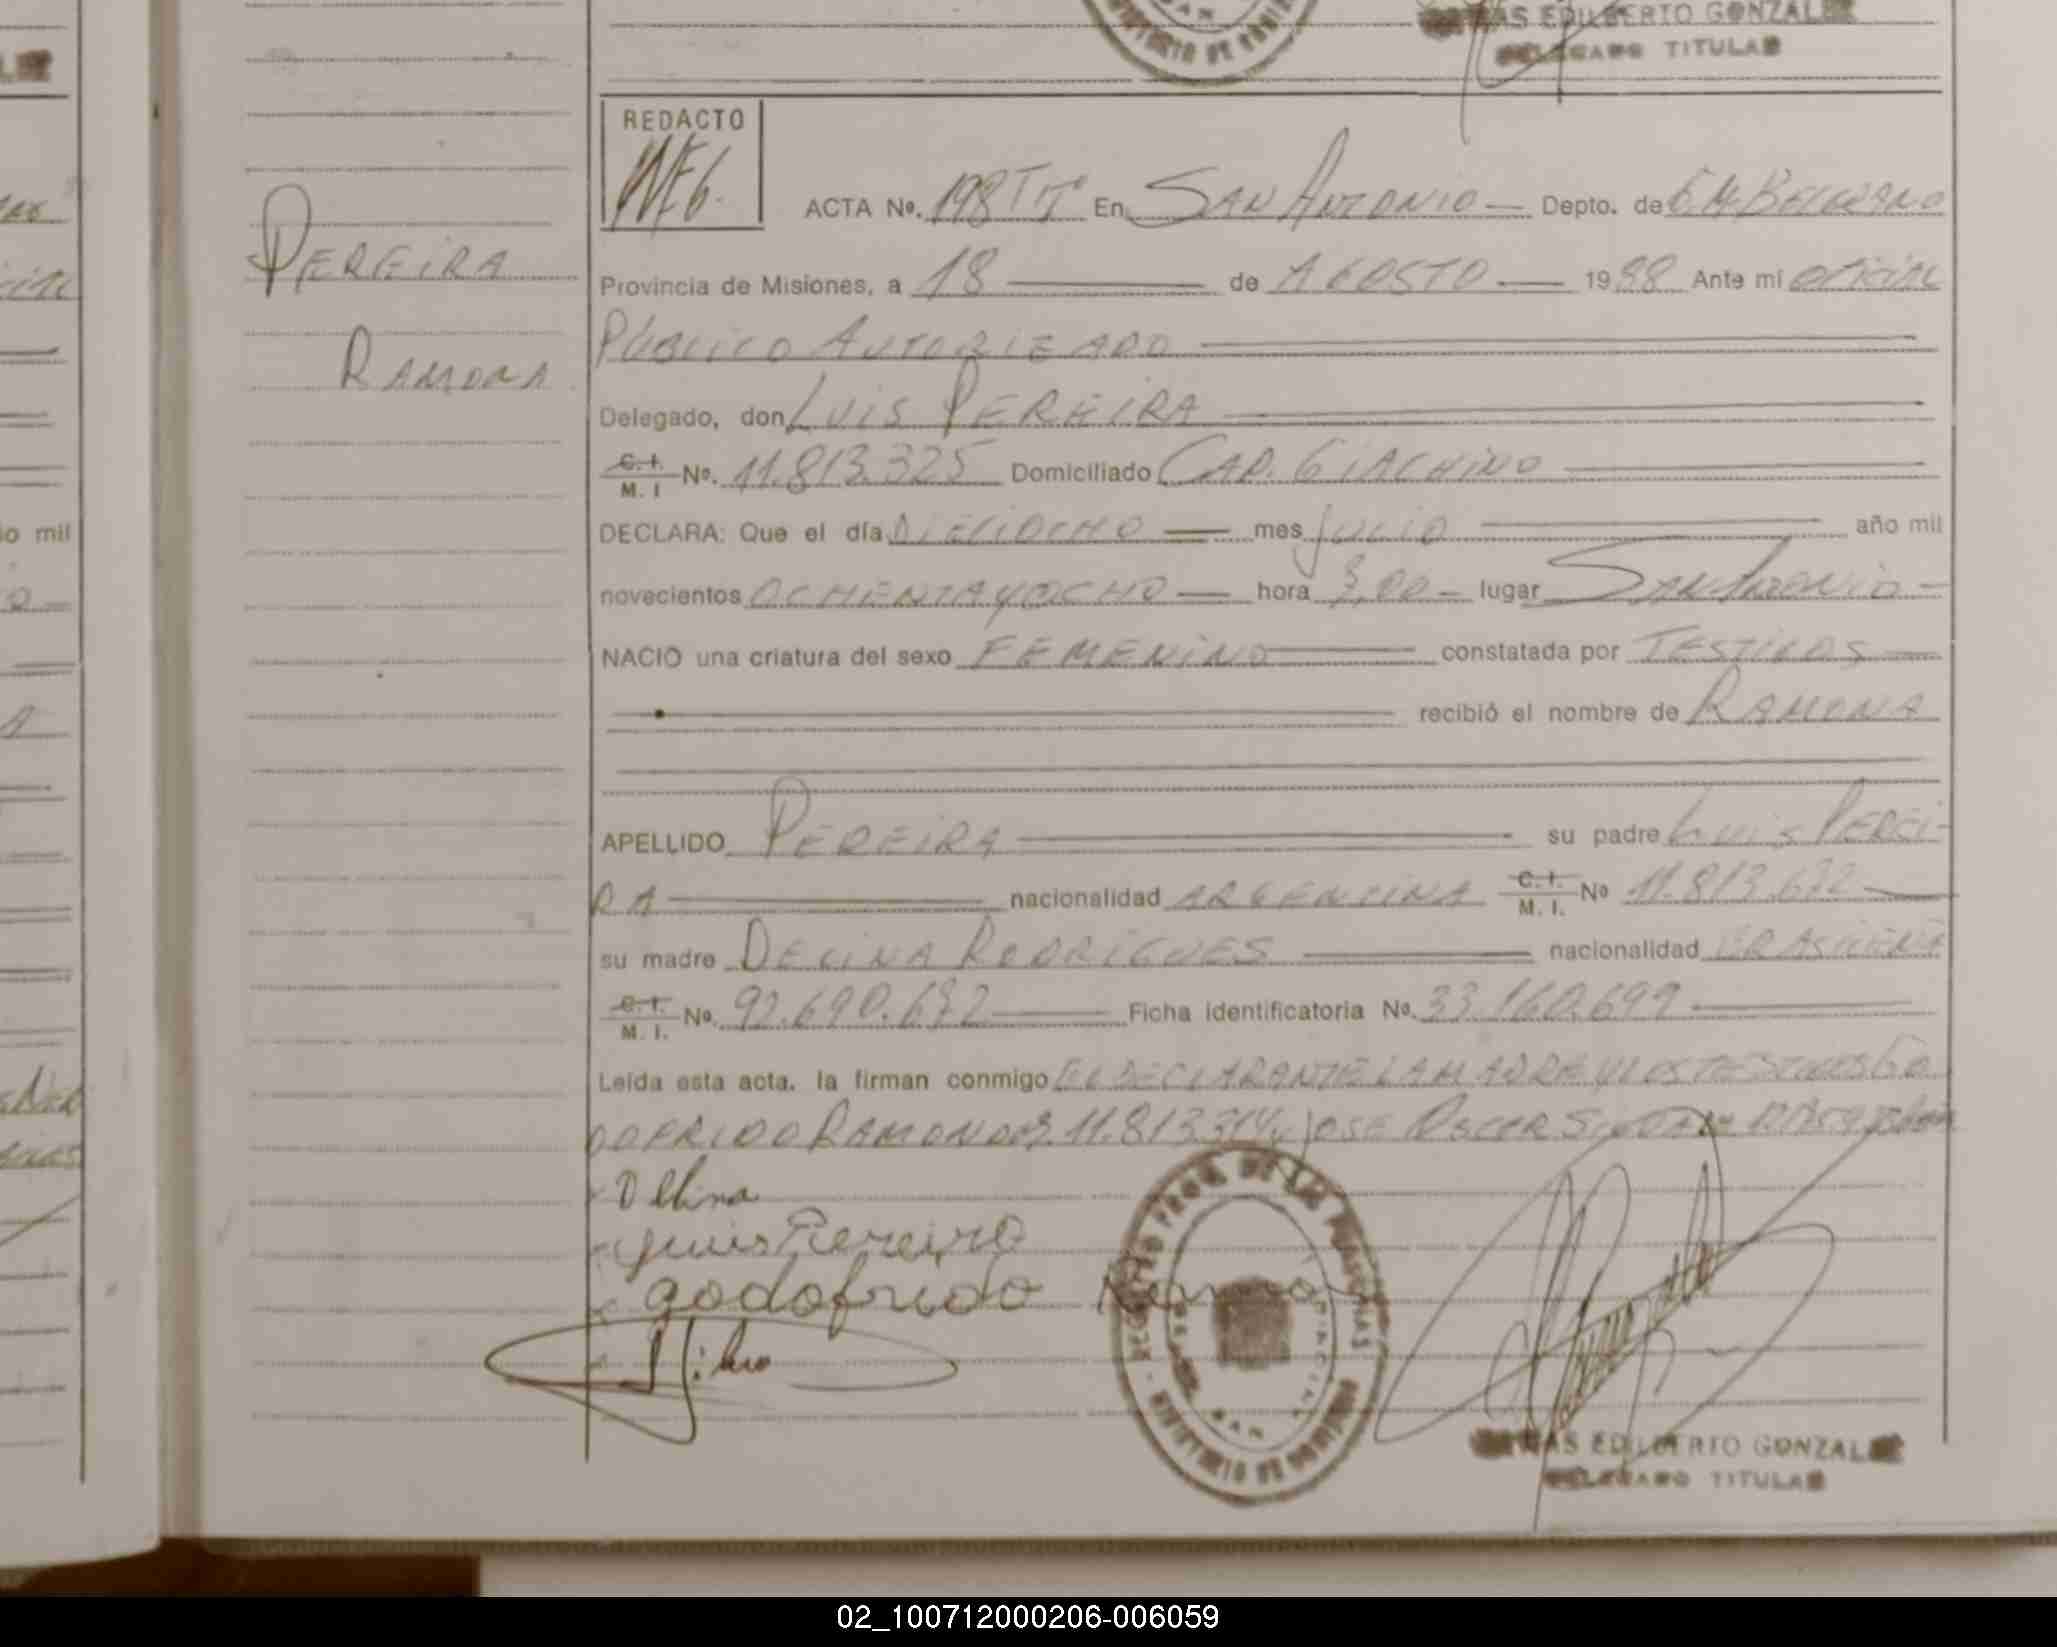 AS EDILBERTO GONZALEZ
DELEGADO TITULAR
REDACTO
ACTA Nº. 198 Tº En SAN ANTONIO — Depto. de G. M. BELGRANO
PEREIRA
Provincia de Misiones, a 18 — de AGOSTO — 1988 Ante mi OFICIAL
PUBLICO AUTORIZADO
RAMONA
Delegado, don LUIS PEREIRA
C. I. M. I Nº. 11.813.325 Domiciliado CAP. GIACHINO
DECLARA: Que el día DIECIOCHO — mes JULIO — año mil
novecientos OCHENTA Y OCHO — hora 3,00 — lugar SAN ANTONIO —
NACIO una criatura del sexo FEMENINO — constatada por TESTIGOS —
recibió el nombre de RAMONA
APELLIDO PEREIRA — su padre LUIS PEREI-
RA — nacionalidad ARGENTINA C. I. M. I. Nº 11.813.672 —
su madre DELINA RODRIGUES — nacionalidad BRASILEÑA
C. I. M. I. Nº. 92.690.672 — Ficha identificatoria Nº. 33.160.699 —
Leída esta acta. la firman conmigo EL DECLARANTE LA MADRE Y LOS TESTIGOS GO
DOFRIDO RAMON 11.813.314 y JOSE OSCAR
Delina
Luis Pereira
godofrido Ramon
REGISTRO PROV. DE LAS PERSONAS
SAN
AS EDILBERTO GONZALEZ
DELEGADO TITULAR
02_100712000206-006059